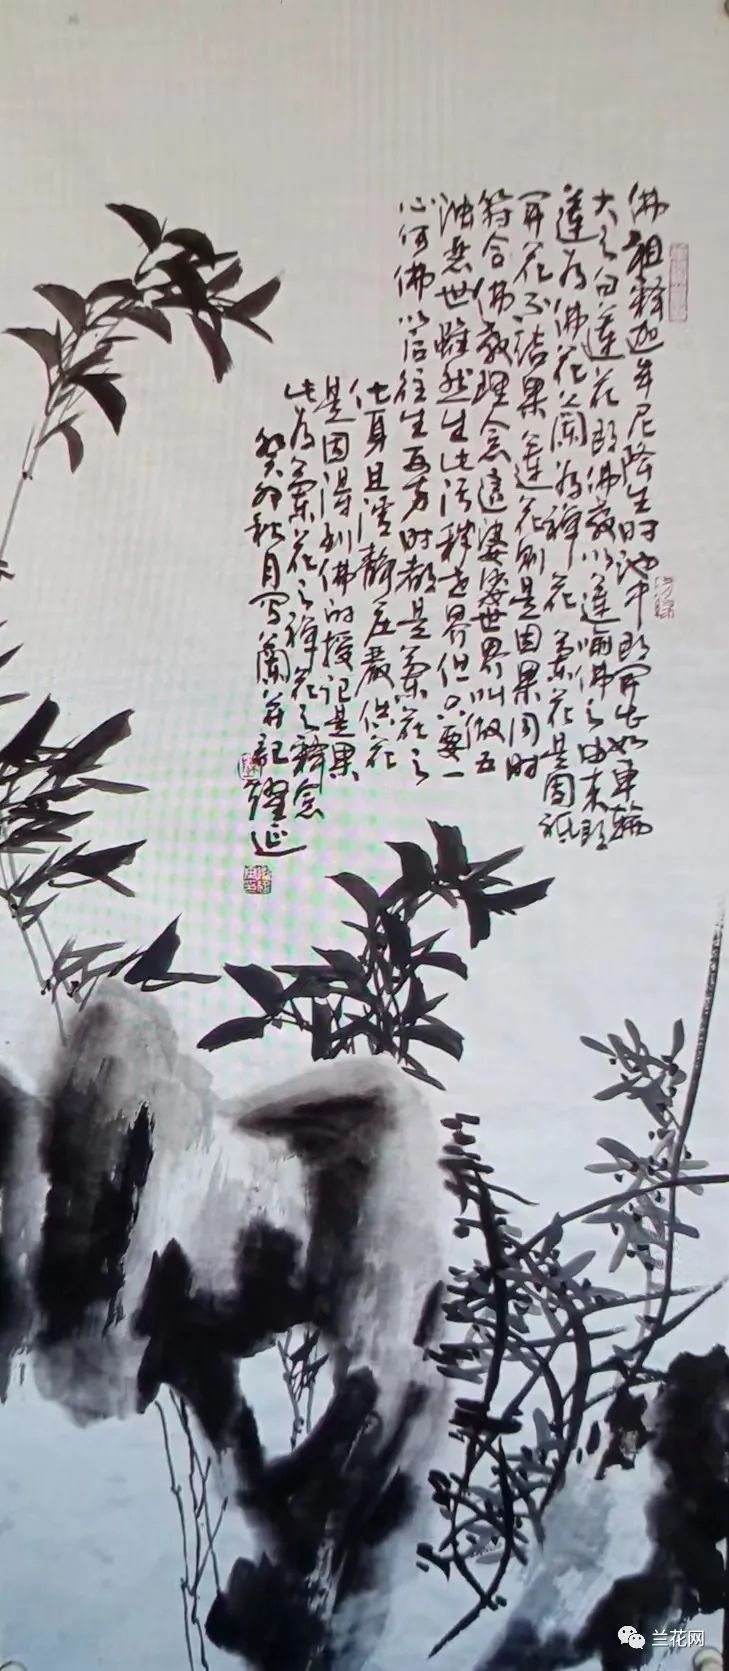 佛祖释迦牟尼降生时池中即开出如车轮
大之白莲花即佛教以莲喻佛之由来即
莲为佛花兰为禅花 兰花是因祗
开花不结果 莲花则是因果同时
符合佛教理念这娑婆世界叫做五
浊恶世虽然生此污秽世界但只要一
心何佛以后往生西方时都是兰花之
化身且清静庄严供花
是因得到佛的授记是果
此为兰花之禅花之释念
癸卯秋月写兰并记 耀延
兰花网